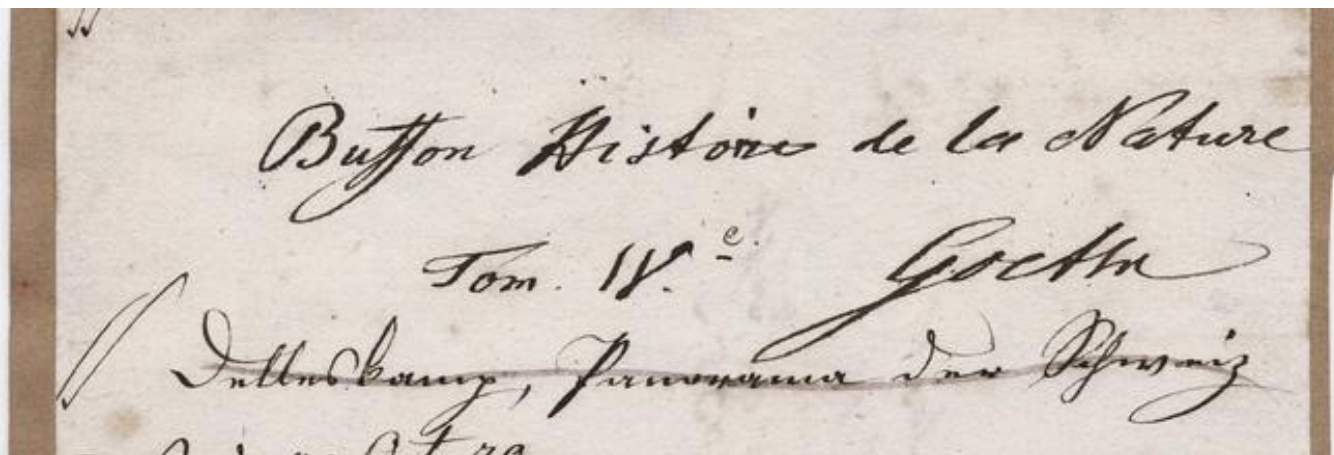 Buffon Histoire de la Nature
Tom. IV.e Goethe
Delleskamp, Panorama der Schweiz